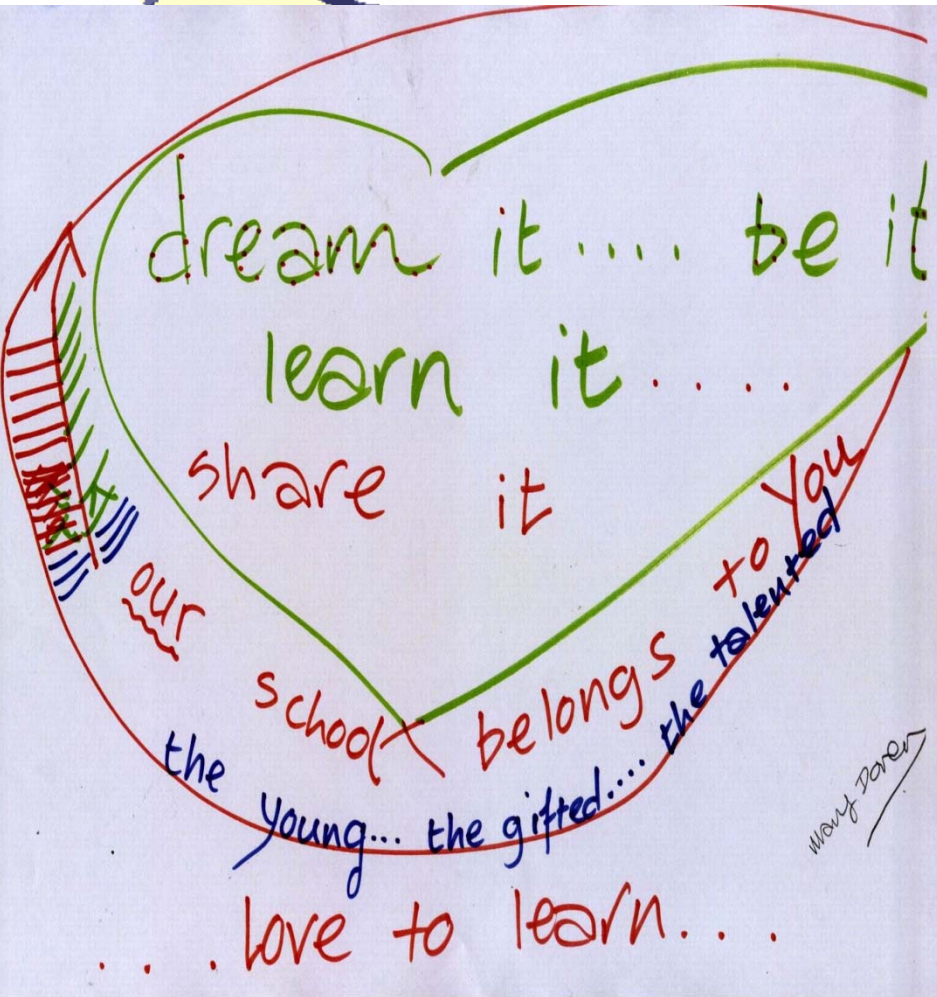 dream it.... be it
learn it.....
share it
our school belongs to you
the young... the gifted.... the talented
....love to learn...